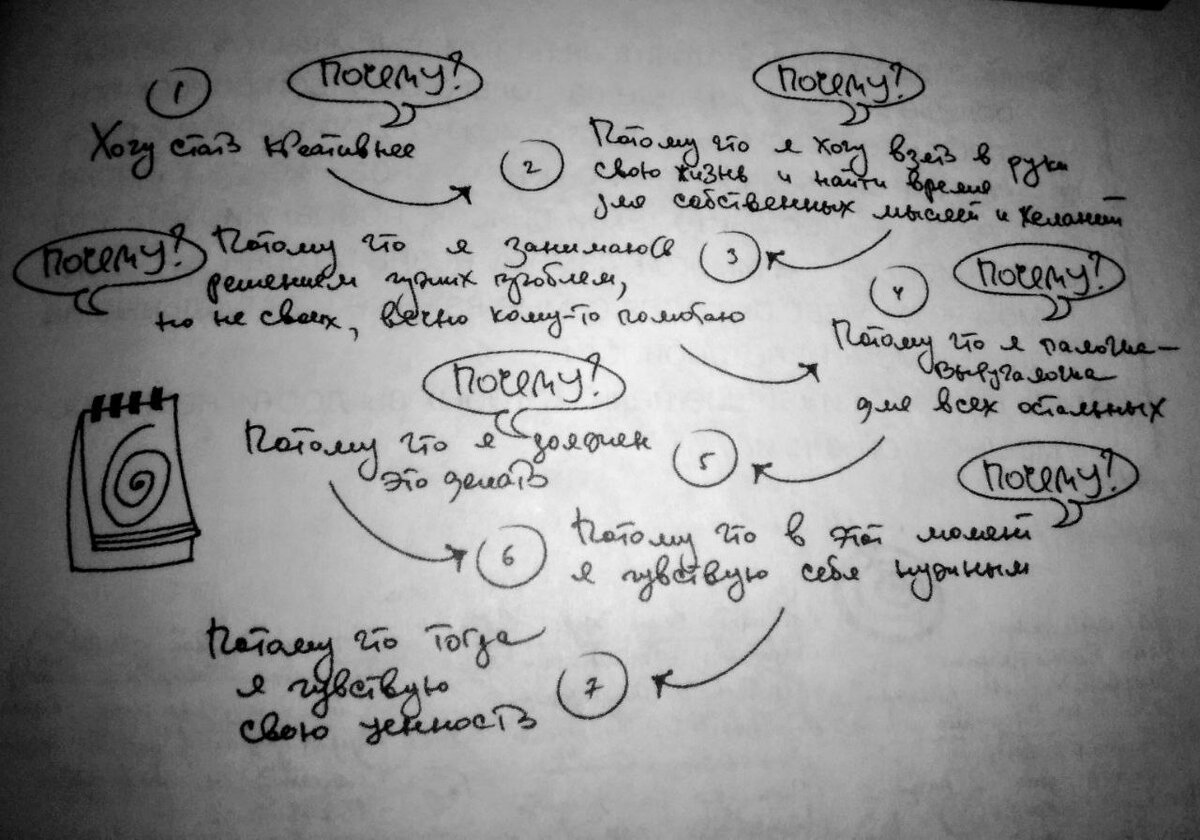 1
Почему?
Хочу стать креативнее
2
Почему?
Потому что я хочу взять в руки
свою жизнь и найти время
для собственных мыслей и желаний
3
Почему?
Потому что я занимаюсь
решением чужих проблем,
но не своих, вечно кому-то помогаю
4
Почему?
Потому что я палочка-
выручалочка
для всех остальных
5
Почему?
Потому что я должен
это делать
6
Почему?
Потому что в этот момент
я чувствую себя нужным
7
Потому что тогда
я чувствую
свою ценность